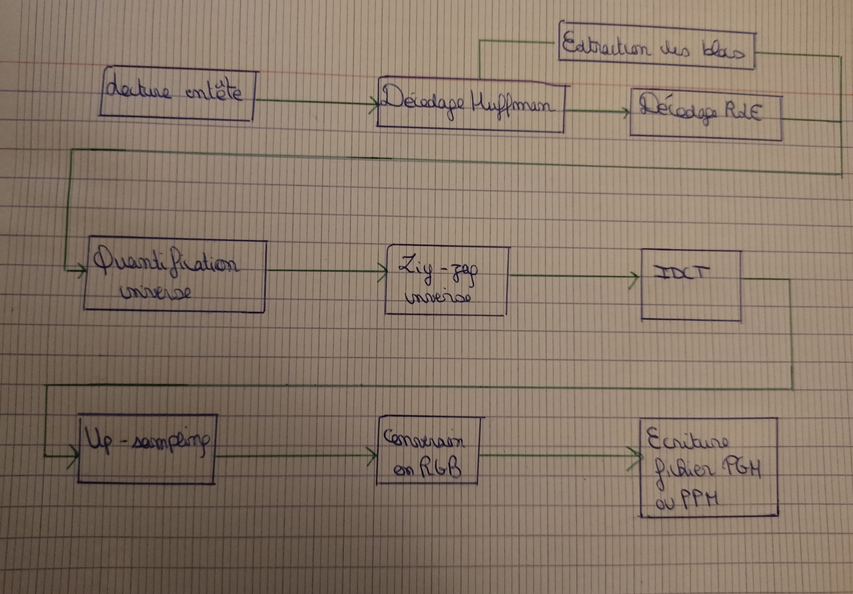 Extraction des blocs
Lecture entête
Décodage Huffman
Décodage RLE
Quantification
inverse
Zig-zag
inverse
IDCT
Up-sampling
Conversion
en RGB
Ecriture
fichier PGM
ou PPM